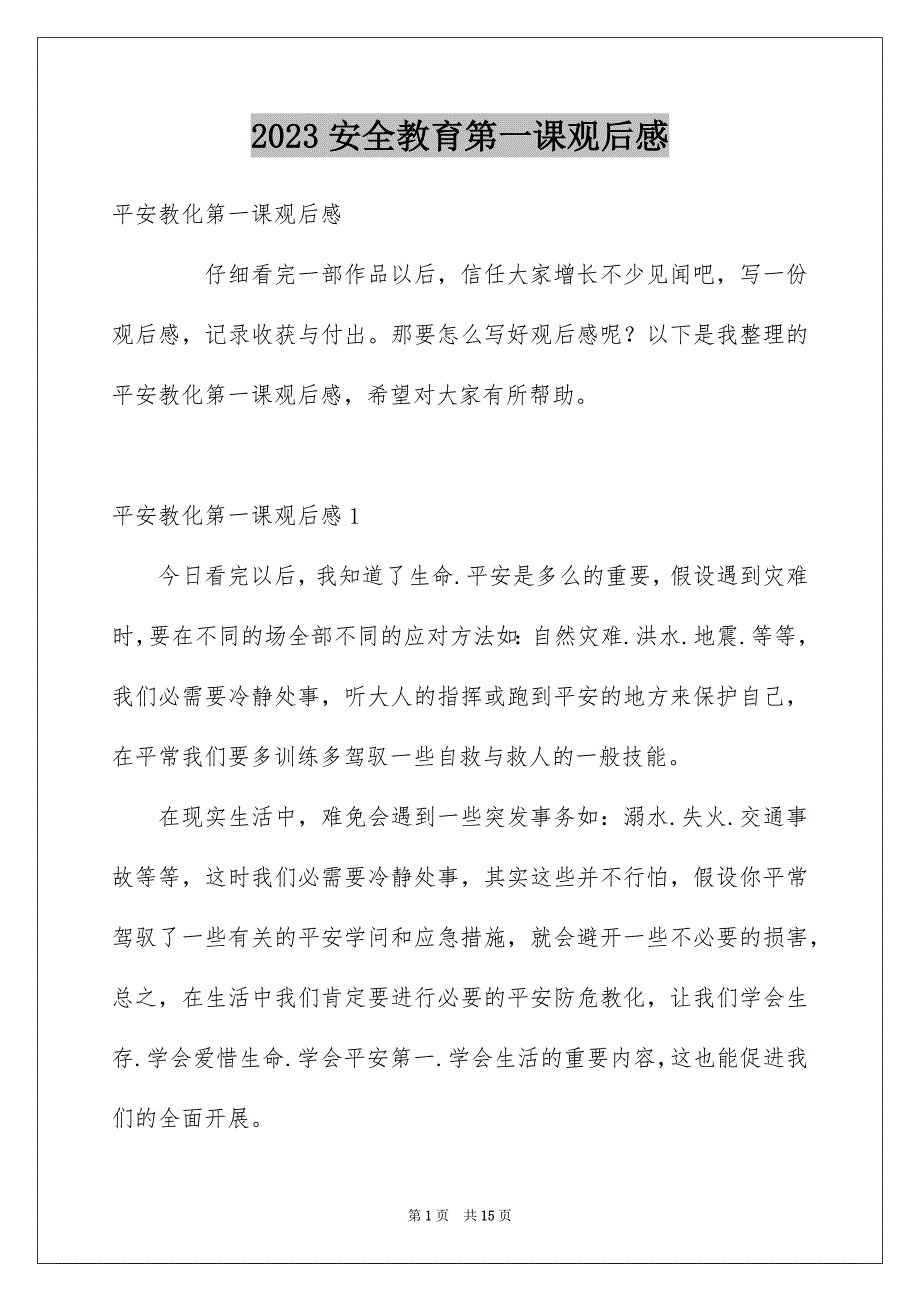 2023安全教育第一课观后感
平安教化第一课观后感
仔细看完一部作品以后，信任大家增长不少见闻吧，写一份
观后感，记录收获与付出。那要怎么写好观后感呢？以下是我整理的
平安教化第一课观后感，希望对大家有所帮助。
平安教化第一课观后感1
今日看完以后，我知道了生命.平安是多么的重要，假设遇到灾难
时，要在不同的场全部不同的应对方法如：自然灾难.洪水.地震.等等，
我们必需要冷静处事，听大人的指挥或跑到平安的地方来保护自己，
在平常我们要多训练多驾驭一些自救与救人的一般技能。
在现实生活中，难免会遇到一些突发事务如：溺水.失火.交通事
故等等，这时我们必需要冷静处事，其实这些并不行怕，假设你平常
驾驭了一些有关的平安学问和应急措施，就会避开一些不必要的损害，
总之，在生活中我们肯定要进行必要的平安防危教化，让我们学会生
存.学会爱惜生命.学会平安第一.学会生活的重要内容，这也能促进我
们的全面开展。
第1页 共15页